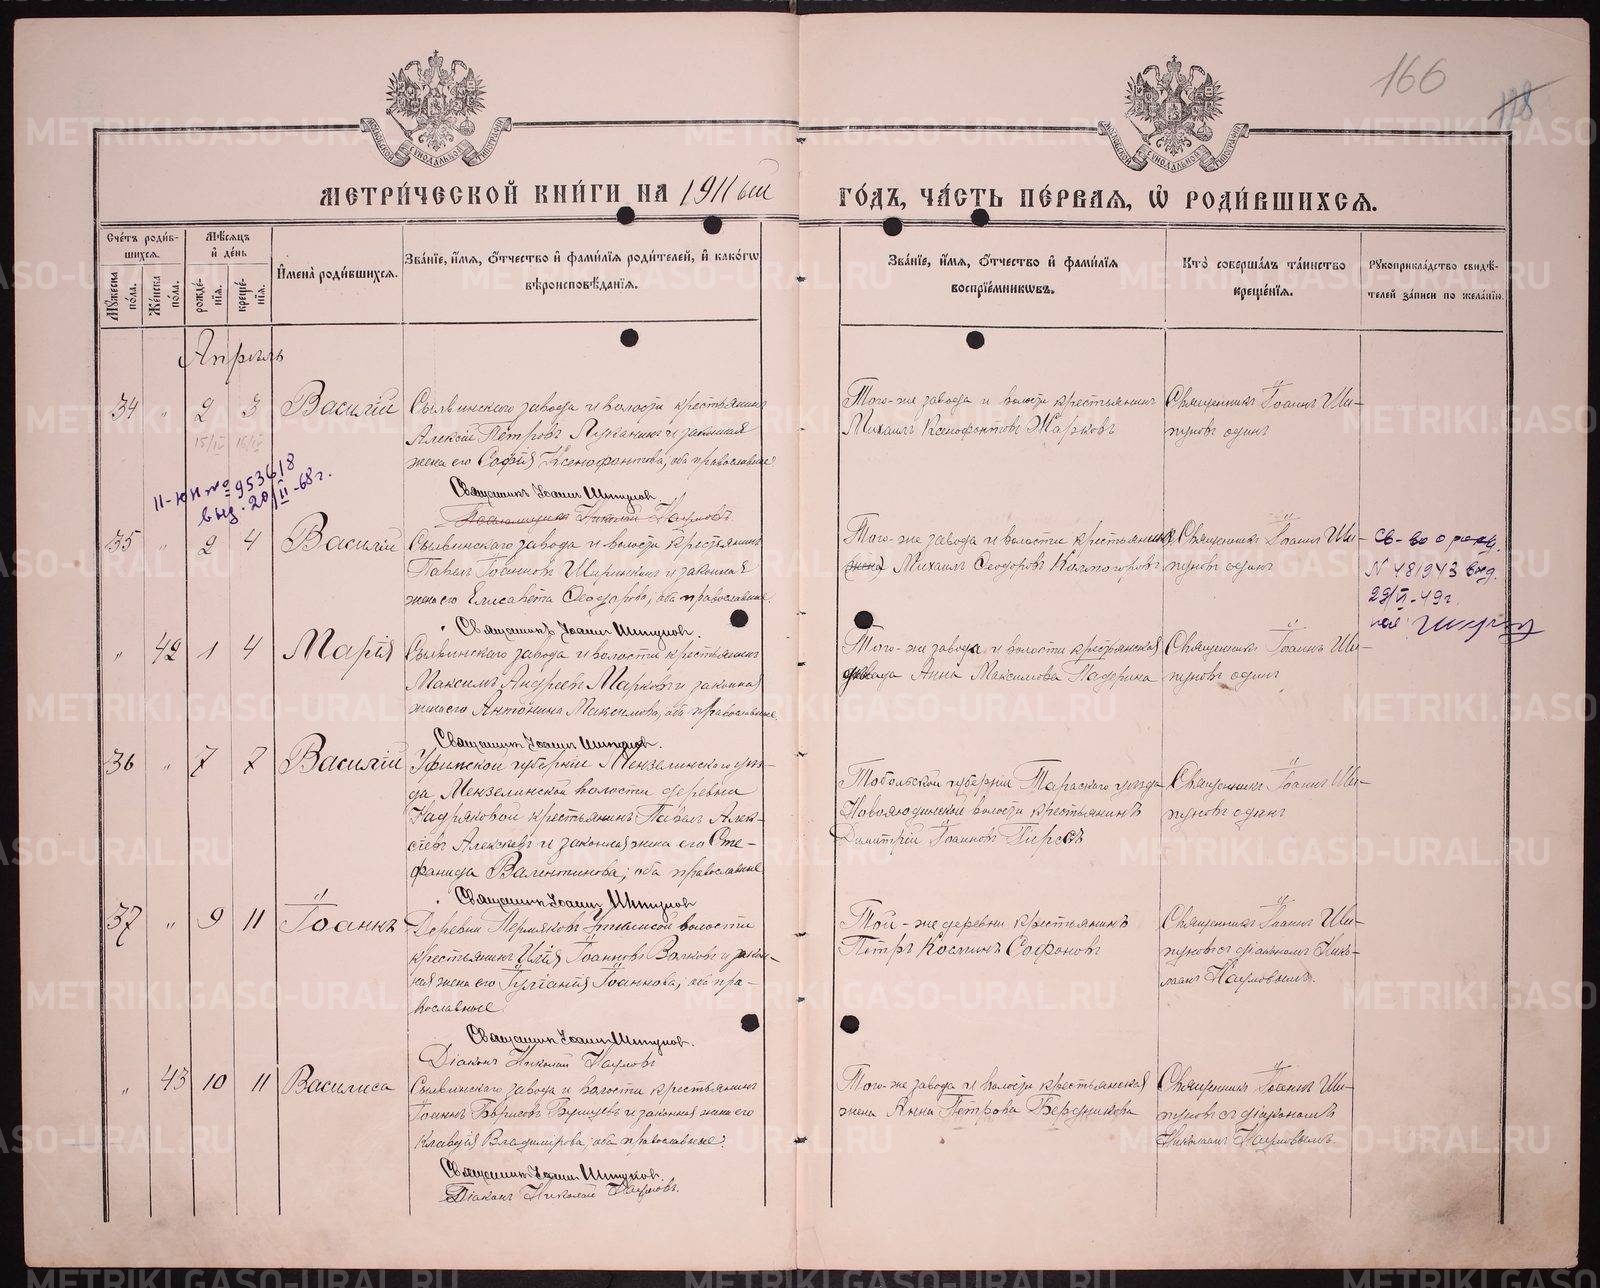 166
118
МЕТРИ́ЧЕСКОЙ КНИ́ГИ НА 1911 ый ГО́ДЪ, ЧА́СТЬ ПЕ́РВАЯ, Ѡ҆ РОДИ́ВШИХСЯ.
Сче́тъ роди́вшихся.
Мѣ́сяцъ и҆ де́нь
И҆мена̀ роди́вшихся.
Зва́нїе, и҆́мя, ѻ҆́тчество и҆ фами́лїя роди́телей, и҆ како́гѡ
вѣроисповѣ́данїя.
Зва́нїе, и҆́мя, ѻ҆́тчество и҆ фами́лїя
воспрїе́мникѡвъ.
Кто̀ соверша́лъ та́инство
креще́нїя.
Рꙋкоприкла́дство свидѣ́-
телей за́писи по жела́нїю.
Мꙋ́жеска по́ла.
Же́нска по́ла.
рожде́нїя.
креще́нїя.
Апрѣль
34 " 2 3 Василій
15/IV 16/IV
Сылвинскаго завода и волости крестьянинъ
Алексій Петровъ Луканинъ и законная
жена его Софія Ксенофонтова, оба православные
Священникъ Іоаннъ Шипуновъ.
Того-же завода и волости крестьянинъ
Михаилъ Ксенофонтовъ Жарковъ
Священникъ Іоаннъ Ши-
пуновъ одинъ
II-ЮН № 953618
выд. 20/II-68 г.
35 " 2 4 Василій
Сылвинскаго завода и волости крестьянинъ
Павелъ Іоанновъ Ширинкинъ и законная
жена его Елисавета Ѳеодорова, оба православные.
Священникъ Іоаннъ Шипуновъ.
Того-же завода и волости крестьянинъ
Михаилъ Ѳеодоровъ Колмогоровъ
Священникъ Іоаннъ Ши-
пуновъ одинъ
Св-во о рожд.
N 481943 выд.
29/VI-49 г.
" 42 1 4 Марія
Сылвинскаго завода и волости крестьянинъ
Максимъ Андреевъ Марковъ и законная
жена его Антонина Максимова, оба православные
Священникъ Іоаннъ Шипуновъ.
Того-же завода и волости крестьянская
дѣвица Анна Максимова Падерина
Священникъ Іоаннъ Ши-
пуновъ одинъ
36 " 7 7 Василій
Уфимской губерніи Мензелинскаго уѣз-
да, Мензелинской волости деревни
крестьянинъ Павелъ Алек-
сѣевъ Алексѣевъ и законная жена его Сте-
фанида Валентинова, оба православные
Священникъ Іоаннъ Шипуновъ
Тобольской губерніи Тарскаго уѣзда
волости крестьянинъ
Димитрій Іоанновъ
Священникъ Іоаннъ Ши-
пуновъ одинъ
37 " 9 11 Іоаннъ
Деревни Пермяковъ волости
крестьянинъ Илія Іоанновъ Волковъ и закон-
ная жена его Іуліанія Іоаннова, оба пра-
вославные
Священникъ Іоаннъ Шипуновъ.
Діаконъ Николай Наумовъ
Той-же деревни крестьянинъ
Петръ Косминъ Сафоновъ
Священникъ Іоаннъ Ши-
пуновъ съ діакономъ Нико-
лаемъ Наумовымъ.
" 43 10 11 Василиса
Сылвинскаго завода и волости крестьянинъ
Іоаннъ Борисовъ и законная жена его
Клавдія Владимірова, оба православные.
Священникъ Іоаннъ Шипуновъ.
Діаконъ Николай Наумовъ.
Того-же завода и волости крестьянская
жена Анна Петрова Бердникова
Священникъ Іоаннъ Ши-
пуновъ съ діакономъ
Николаемъ Наумовымъ.
METRIKI.GASO-URAL.RU